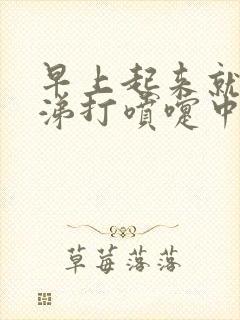 早上起来就
涕打喷嚏中
草莓落落